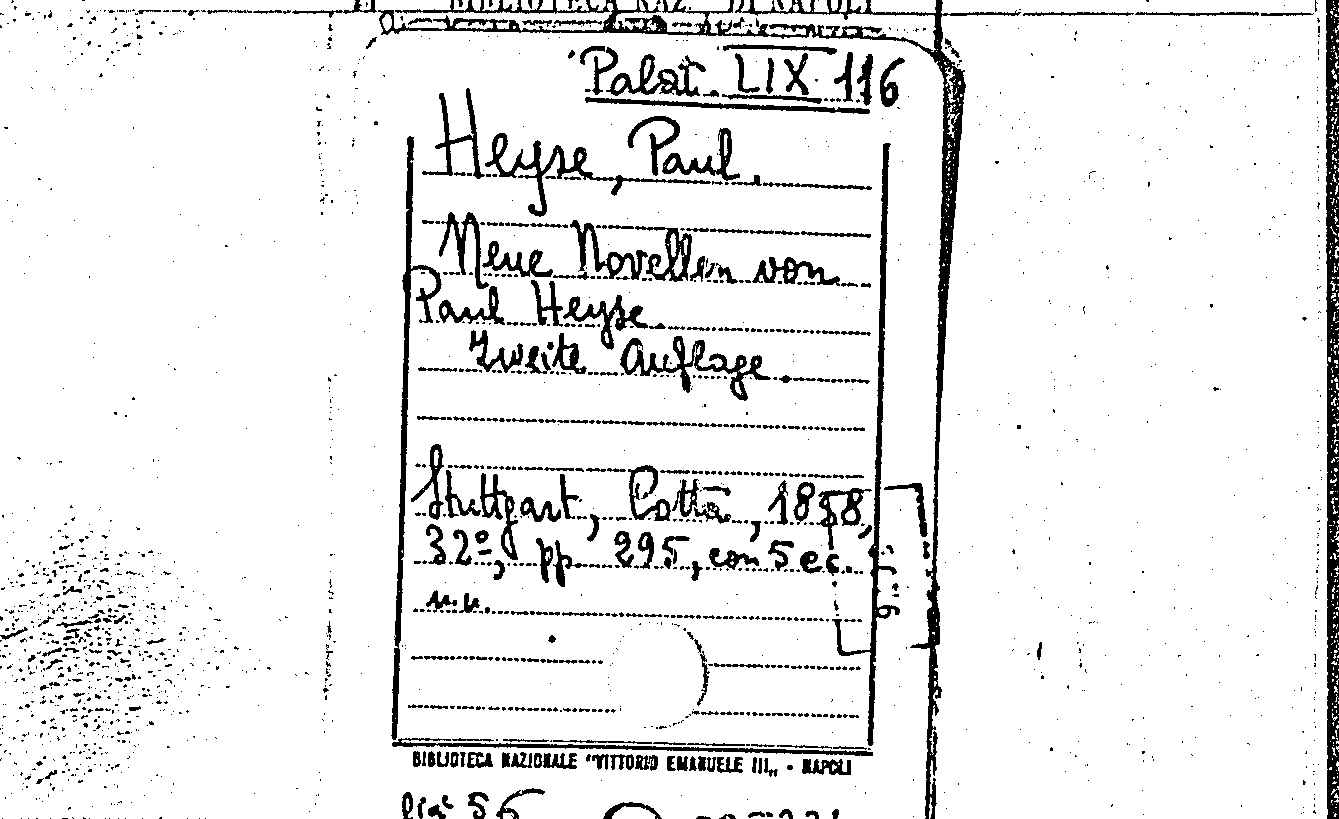 BIBLIOTECA NAZ. DI NAPOLI
Palat. LIX 116
Heyse, Paul.
Neue Novellen von
Paul Heyse.
Zweite Auflage.
Stuttgart, Cotta, 1858,
32º, pp. 295, con 5 ec.
n.n.
BIBLIOTECA NAZIONALE "VITTORIO EMANUELE III„ - NAPOLI